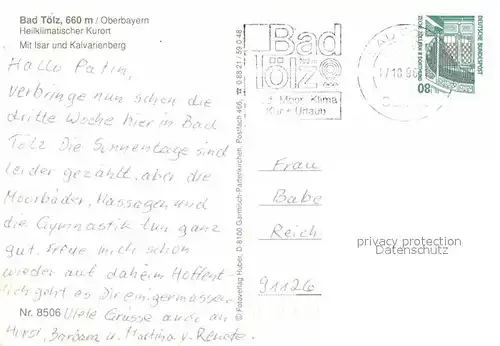 Bad Tölz, 660 m / Oberbayern
Heilklimatischer Kurort
Mit Isar und Kalvarienberg
Hallo Patin,
verbringe nun schon die
dritte Woche hier in Bad
Tölz. Die Sonnentage sind
leider gezählt, aber die
Moorbäder, Massagen und
die Gymnastik tun ganz
gut. Freue mich schon
wieder auf daheim. Hoffent-
lich geht es Dir einigermassen.
Nr. 8506 Viele Grüsse auch an
Horst, Barbara u. Martina v. Renate.
© Fotoverlag Huber, D-8100 Garmisch-Partenkirchen, Postfach 466, ☎ 0 88 21 / 59 0 48
Bad
Tölz
Moor Klima
Kur + Urlaub
80
DEUTSCHE BUNDESPOST
ZECHE ZOLLERN II DORTMUND
Frau
Babe
Reich
91126
privacy protection
Datenschutz